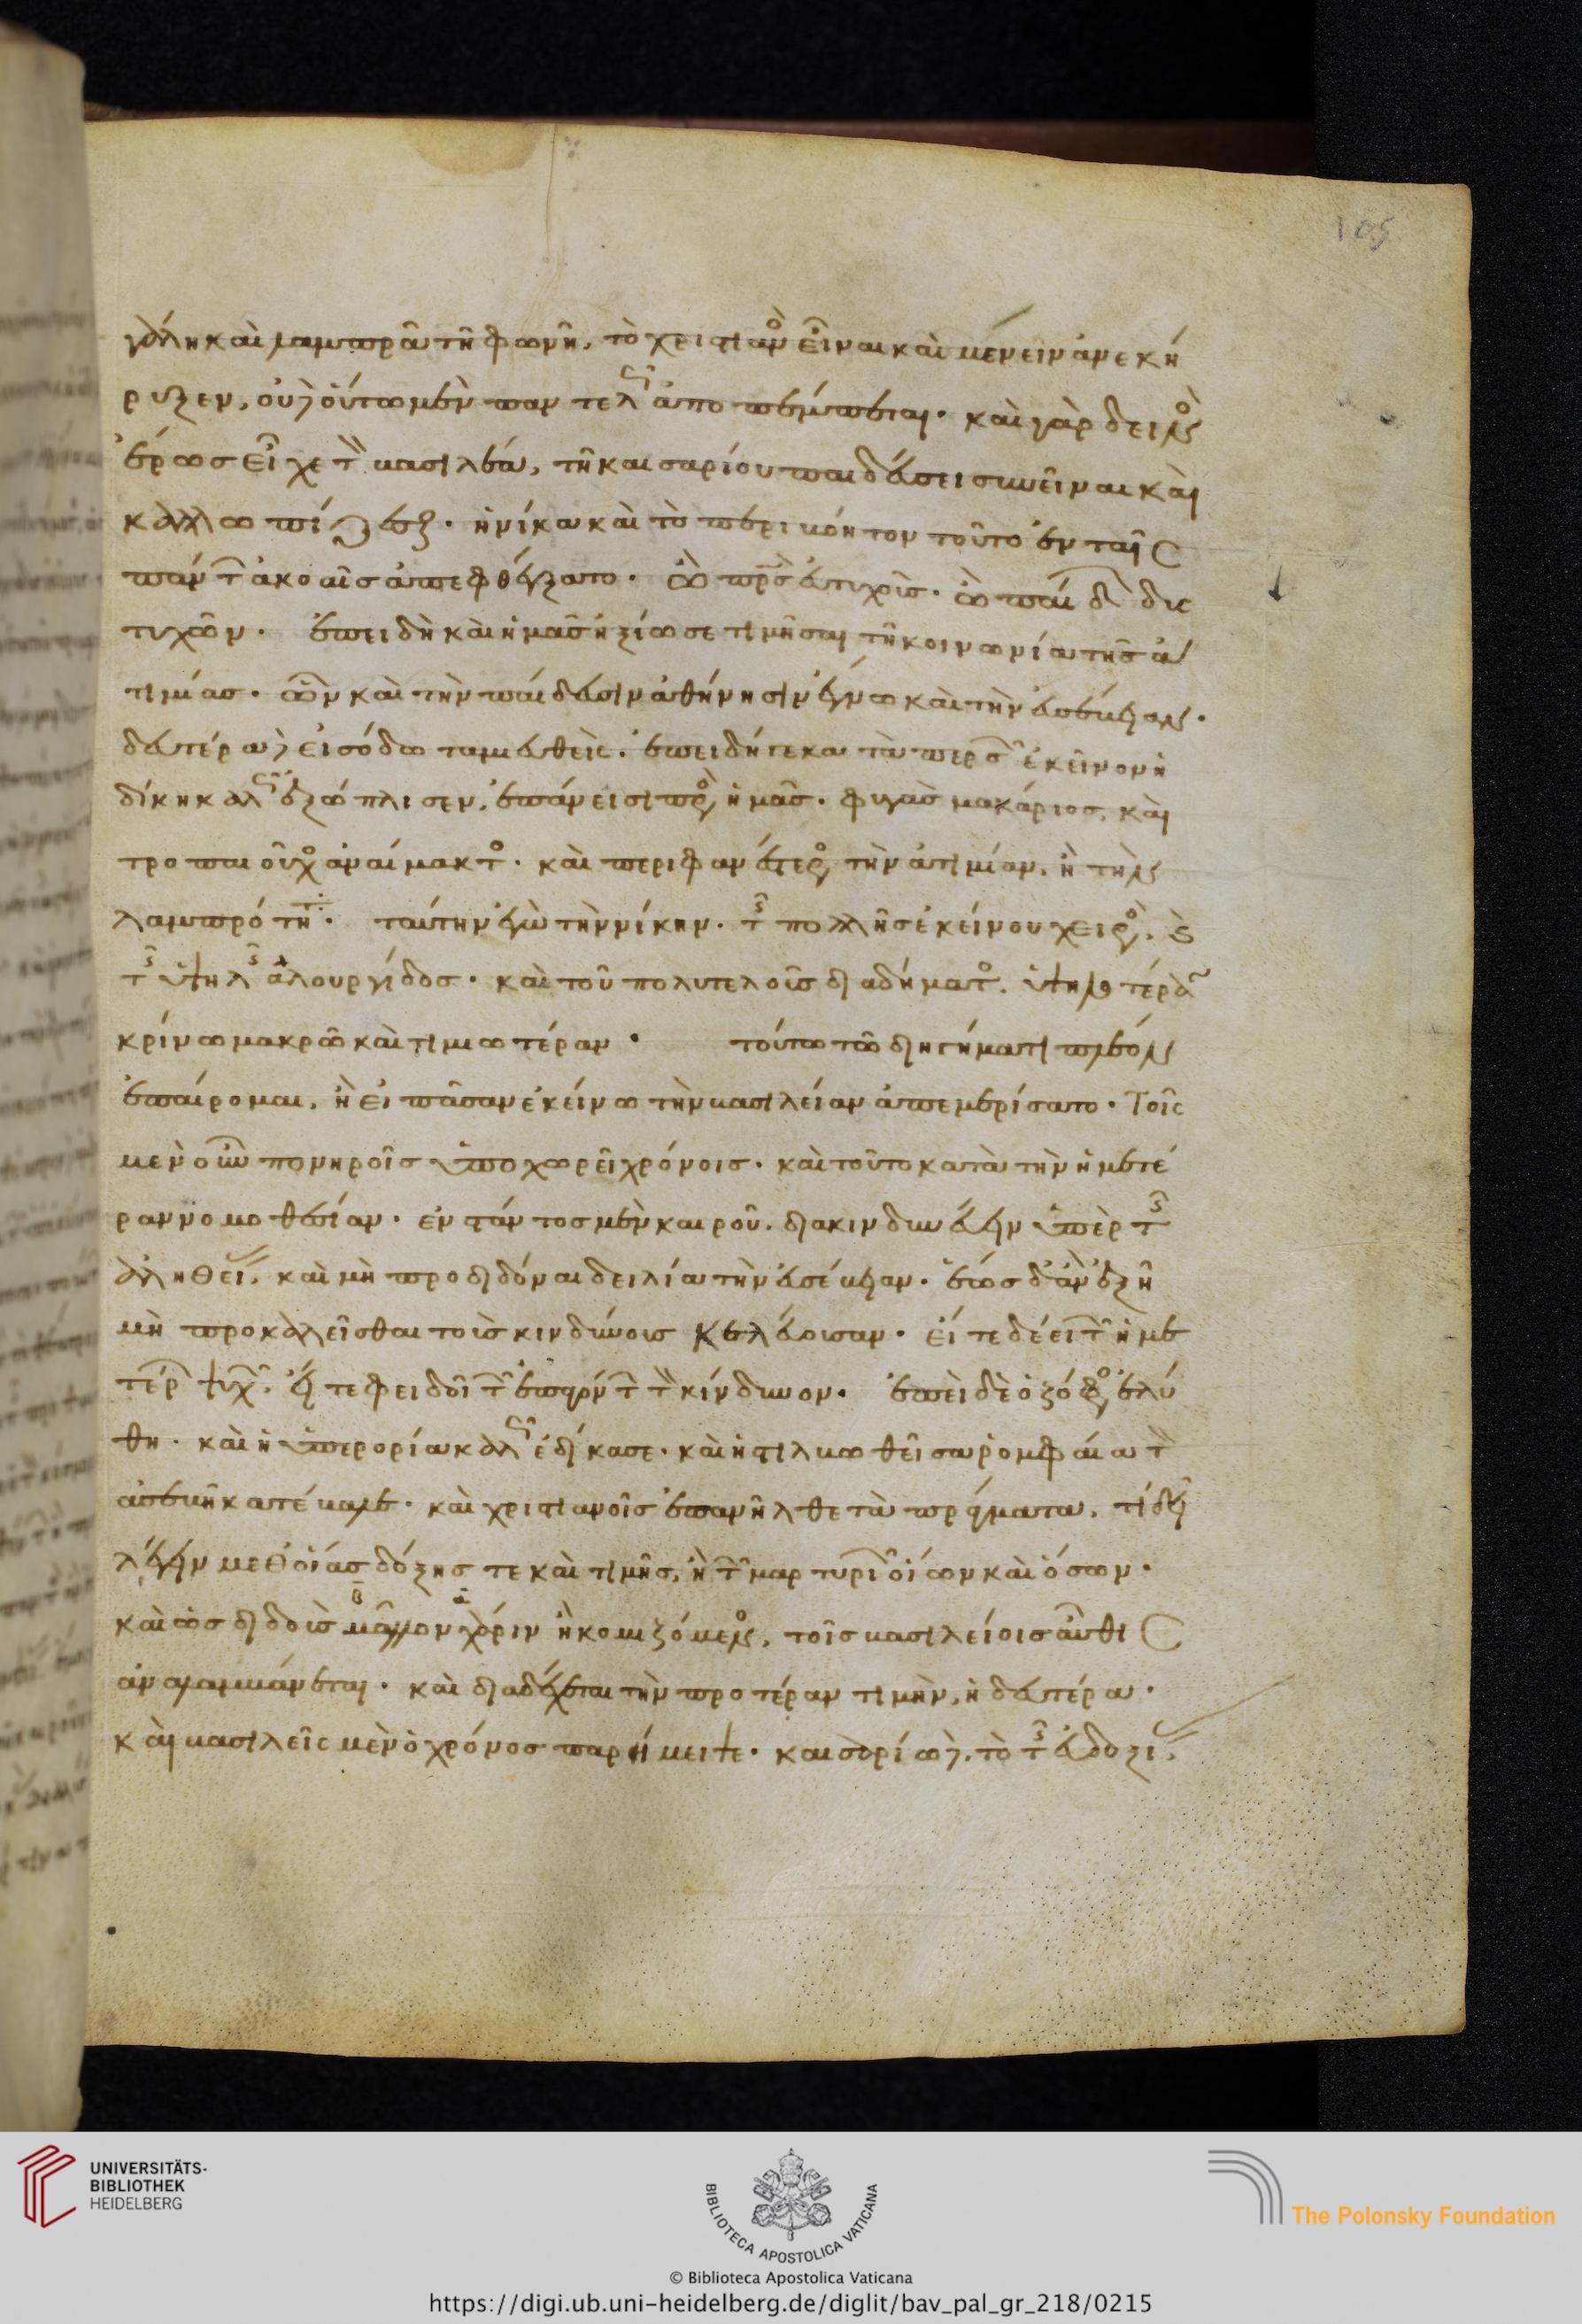 γάλη καὶ λαμπρᾶ τῆ φωνῆ, τὸ χριστιανὸς εἶναι καὶ μένειν ἀνεκή
ρυξεν, οὐδ' οὕτω μὲν παντελῶς ἀποπέμπεται· καὶ γὰρ δεινὸς
ἔρωσ εἶχε τὸν βασιλέα, τῆ καισαρίου παιδεύσει συνεῖναι καὶ
καλλωπίζεσθαι· ἡνίκα καὶ τὸ περιβόητον τοῦτο ἐν ταῖς
πάντων ἀκοαῖσ ἀπεφθέγξατο· ὢ πατρὸς εὐτυχοῦς· ὢ παίδων δυς
τυχῶν· ἐπειδὴ καὶ ἡμᾶσ ἠξίωσε τιμῆσαι τῆ κοινωνία τῆσ ἀ
τιμίασ· ὧν καὶ τὴν παίδευσιν ἀθήνησιν ἔγνω καὶ τὴν εὐσέβειαν·
δευτέρα δὲ εἰσόδω ταμιευθεὶς· ἐπειδή γε κατὰ περσῶν ἐκεῖνον ἡ
δίκη καλῶς ἐξώπλισεν, ἐπάνεισι πρὸς ἡμᾶσ· φυγὰσ μακάριοσ, καὶ
τροπαιοῦχος ἀναίμακτος· καὶ περιφανέστερος τὴν ἀτιμίαν, ἢ τὴν
λαμπρότητα· ταύτην ἐγὼ τὴν νίκην· τῆς πολλῆσ ἐκείνου χειρὸς, καὶ
τῆς ὑψηλῆς ἁλουργίδοσ· καὶ τοῦ πολυτελοῦσ διαδήματος, ὑψηλοτέραν
κρίνω μακρῶ καὶ τιμιωτέραν· τούτω τῶ διηγήματι πλέον
ἐπαίρομαι, ἢ εἰ πᾶσαν ἐκείνω τὴν βασιλείαν ἀπεμερίσατο· Τοῖς
μὲν οὖν πονηροῖσ ὑποχωρεῖ χρόνοισ· καὶ τοῦτο κατὰ τὴν ἡμετέ
ραν νομοθεσίαν· ἐνστάντοσ μὲν καιροῦ, διακινδυνεύειν ὑπὲρ τῆς
ἀληθείας, καὶ μὴ προδιδόναι δειλία τὴν εὐσέβειαν· ἕωσ δ' ἂν ἐξῆ
μὴ προκαλεῖσθαι τοὺσ κινδύνουσ κελεύουσαν· εἴτε δέει τῶν ἡμε
τέρων ψυχῶν· εἴτε φειδοῖ τῶν ἐπαγόντων τὸν κίνδυνον· ἐπεὶ δὲ ὁ ζόφος ἐλύ
θη· καὶ ἡ ὑπερορία καλῶς ἐδίκασε· καὶ ἡ στιλβωθεῖσα ῥομφαία τὸν
ἀσεβῆ κατέβαλε· καὶ χριστιανοῖσ ἐπανῆλθε τὰ πράγματα, τί δεῖ
λέγειν μεθ' οἵασ δόξησ τε καὶ τιμῆσ, ἢ τῶν μαρτυριῶν οἵων καὶ ὅσων·
καὶ ὡσ διδοὺσ μᾶλλον χάριν ἢ κομιζόμενος, τοῖσ βασιλείοισ αὖθις
ἀναλαμβάνεται· καὶ διαδέχεται τὴν προτέραν τιμὴν, ἡ δευτέρα·
καὶ βασιλεῖς μὲν ὁ χρόνοσ παρήμειψε· καισαρίω δὲ, τὸ τῆς εὐδοξίας
105
UNIVERSITÄTS-
BIBLIOTHEK
HEIDELBERG
BIBLIOTECA APOSTOLICA VATICANA
The Polonsky Foundation
© Biblioteca Apostolica Vaticana
https://digi.ub.uni-heidelberg.de/diglit/bav_pal_gr_218/0215